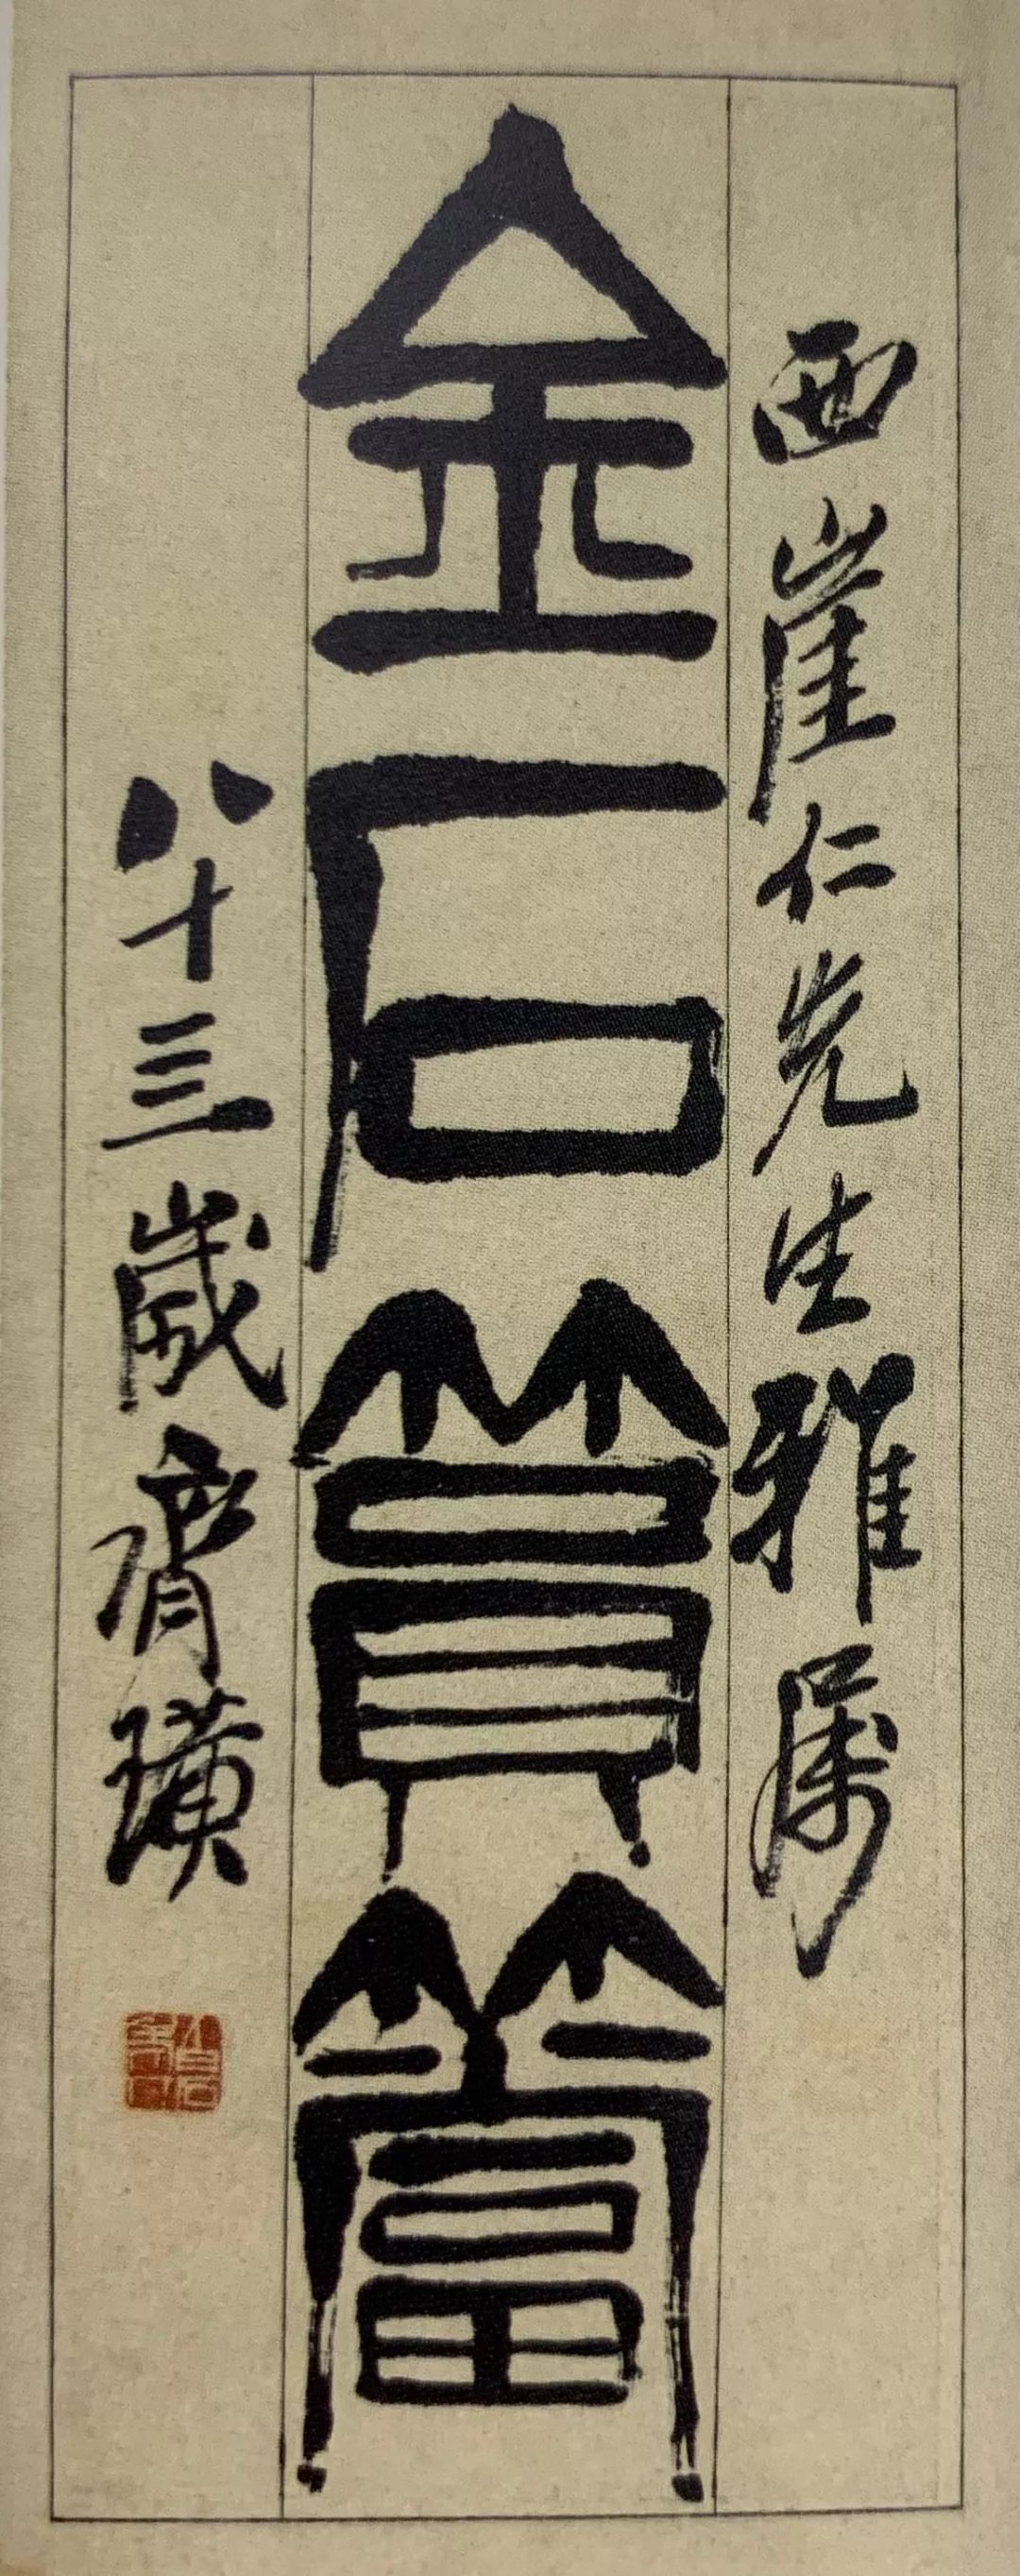 西崖仁先生雅屬
金石篔簹
八十三歲齊璜